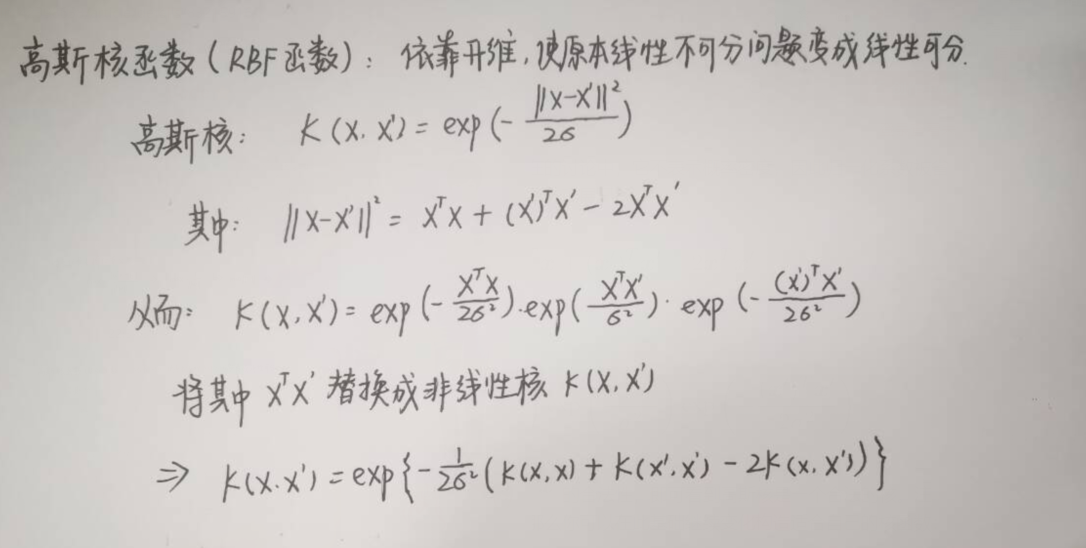 高斯核函数(RBF函数):依靠升维,使原本线性不可分问题变成线性可分.
高斯核: K(x.x')=exp(-||x-x'||²/2σ)
其中: ||x-x'||²=xᵀx+(x')ᵀx'-2xᵀx'
从而: K(x,x')=exp(-xᵀx/2σ²).exp(xᵀx'/σ²).exp(-(x')ᵀx'/2σ²)
将其中xᵀx'替换成非线性核K(x,x')
⇒ K(x.x')=exp{-1/2σ²(K(x,x)+K(x',x')-2K(x,x'))}